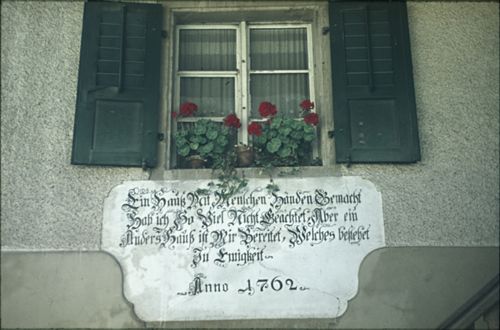 Ein Hauß Mit Menschen Handen Gemacht
Hab ich So Viel Nicht Geachtet, Aber ein
Anders Hauß ist Mir Bereitet, Welches bestehet
In Ewigkeit
Anno 1762